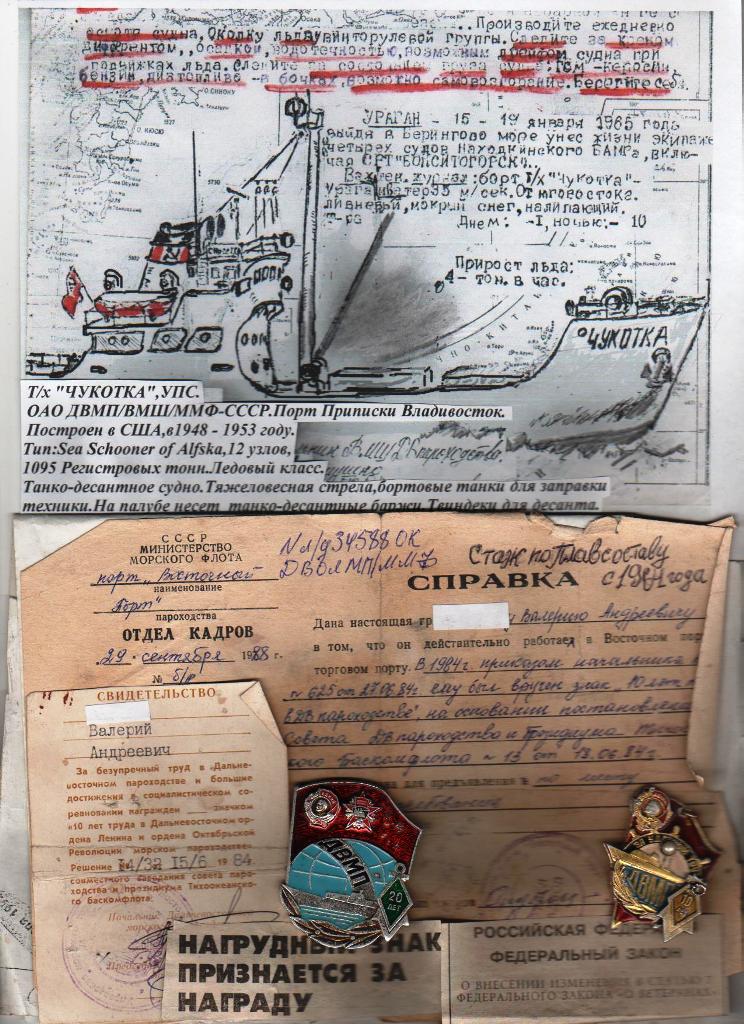 Производите ежедневно
судна, Околку льда, винторулевой группы. Следите за креном
Дифферентом,, осадкой, водотечностью, возможным дрейфом судна при
подвижках льда. Следите за
бензин, дизтопливо - в бочках, возможно самовозгорание. Берегите себя.
УРАГАН - 15 - 19 января 1965 года
выйдя в Берингово море унес жизни экипажей
четырех судов Находкинского БАМРа, вклю-
чая СРТ"БОКСИТОГОРСК".
Вахтен. журнал:борт Т/х"Чукотка"-
Ураган. Ветер 35 м/сек. От
ливневый, мокрый снег, налипающий.
Т-ра Днем: -1, ночью:- 10
Прирост льда:
4- тон. в час.
ЧУКОТКА
Т/х "ЧУКОТКА",УПС.
ОАО ДВМП/ВМШ/ММФ-СССР.Порт Приписки Владивосток.
Построен в США,в1948 - 1953 году.
Тип:Sea Schooner of Alfska,12 узлов,
1095 Регистровых тонн.Ледовый класс.
Танко-десантное судно.Тяжеловесная стрела,бортовые танки для заправки
техники.На палубе несет танко-десантные баржи.Твиндеки для десанта.
СССР
МИНИСТЕРСТВО
МОРСКОГО ФЛОТА
порт „Восточный
наименование
Порт"
пароходства
ОТДЕЛ КАДРОВ
„29„ сентября 1988 г.
№ б/р
N л/д 34588 ОК
Стаж по Плавсоставу
с 1964 года
СПРАВКА
Дана настоящая гр Валерию Андреевичу
в том, что он действительно работает в Восточном пор
торговом порту. В 1984г. приказом начальника
N 625 от 27.06.84г. ему был вручен знак „10 лет в
ДВ пароходстве", на основании постановления
Совета ДВ пароходства и президиума Тихоо
кого Баскомфлота N 13 от 13.06.84г.
для предъявления в по месту
требования
СВИДЕТЕЛЬСТВО
Валерий
Андреевич
За безупречный труд в Дальне-
восточном пароходстве и большие
достижения в социалистическом со-
ревновании награжден значком
«10 лет труда в Дальневосточном ор-
дена Ленина и ордена Октябрьской
Революции морском пароходстве».
Решение № 14/32 15/6 1984.
совместного заседания совета паро-
ходства и президиума Тихоокеанско-
го баскомфлота.
Начальник
морско
Председ
ДВМП
20
ЛЕТ
ДВМП
10
НАГРУДНЫЙ ЗНАК
ПРИЗНАЕТСЯ ЗА
НАГРАДУ
РОССИЙСКАЯ ФЕДЕР
ФЕДЕРАЛЬНЫЙ ЗАКОН
О ВНЕСЕНИИ ИЗМЕНЕНИЯ В СТАТЬЮ
ФЕДЕРАЛЬНОГО ЗАКОНА «О ВЕТЕРАНАХ»